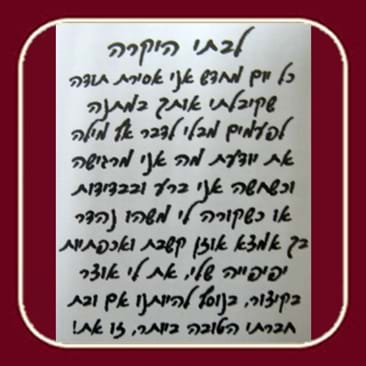 לבתי היקרה
כל יום מחדש אני אסירת תודה
שקיבלתי אותך במתנה
לפעמים מבלי לדבר אף מילה
את יודעת מה אני מרגישה
וכשקשה אני ברע ובבדידות
או כשקורה לי משהו נהדר
בך אמצא אוזן קשבת ואכפתיות
יפיפייה שלי, את לי אוצר
בקיצור, בנוסף להיותנו אם ובת
חברתי הטובה ביותר, זו את!